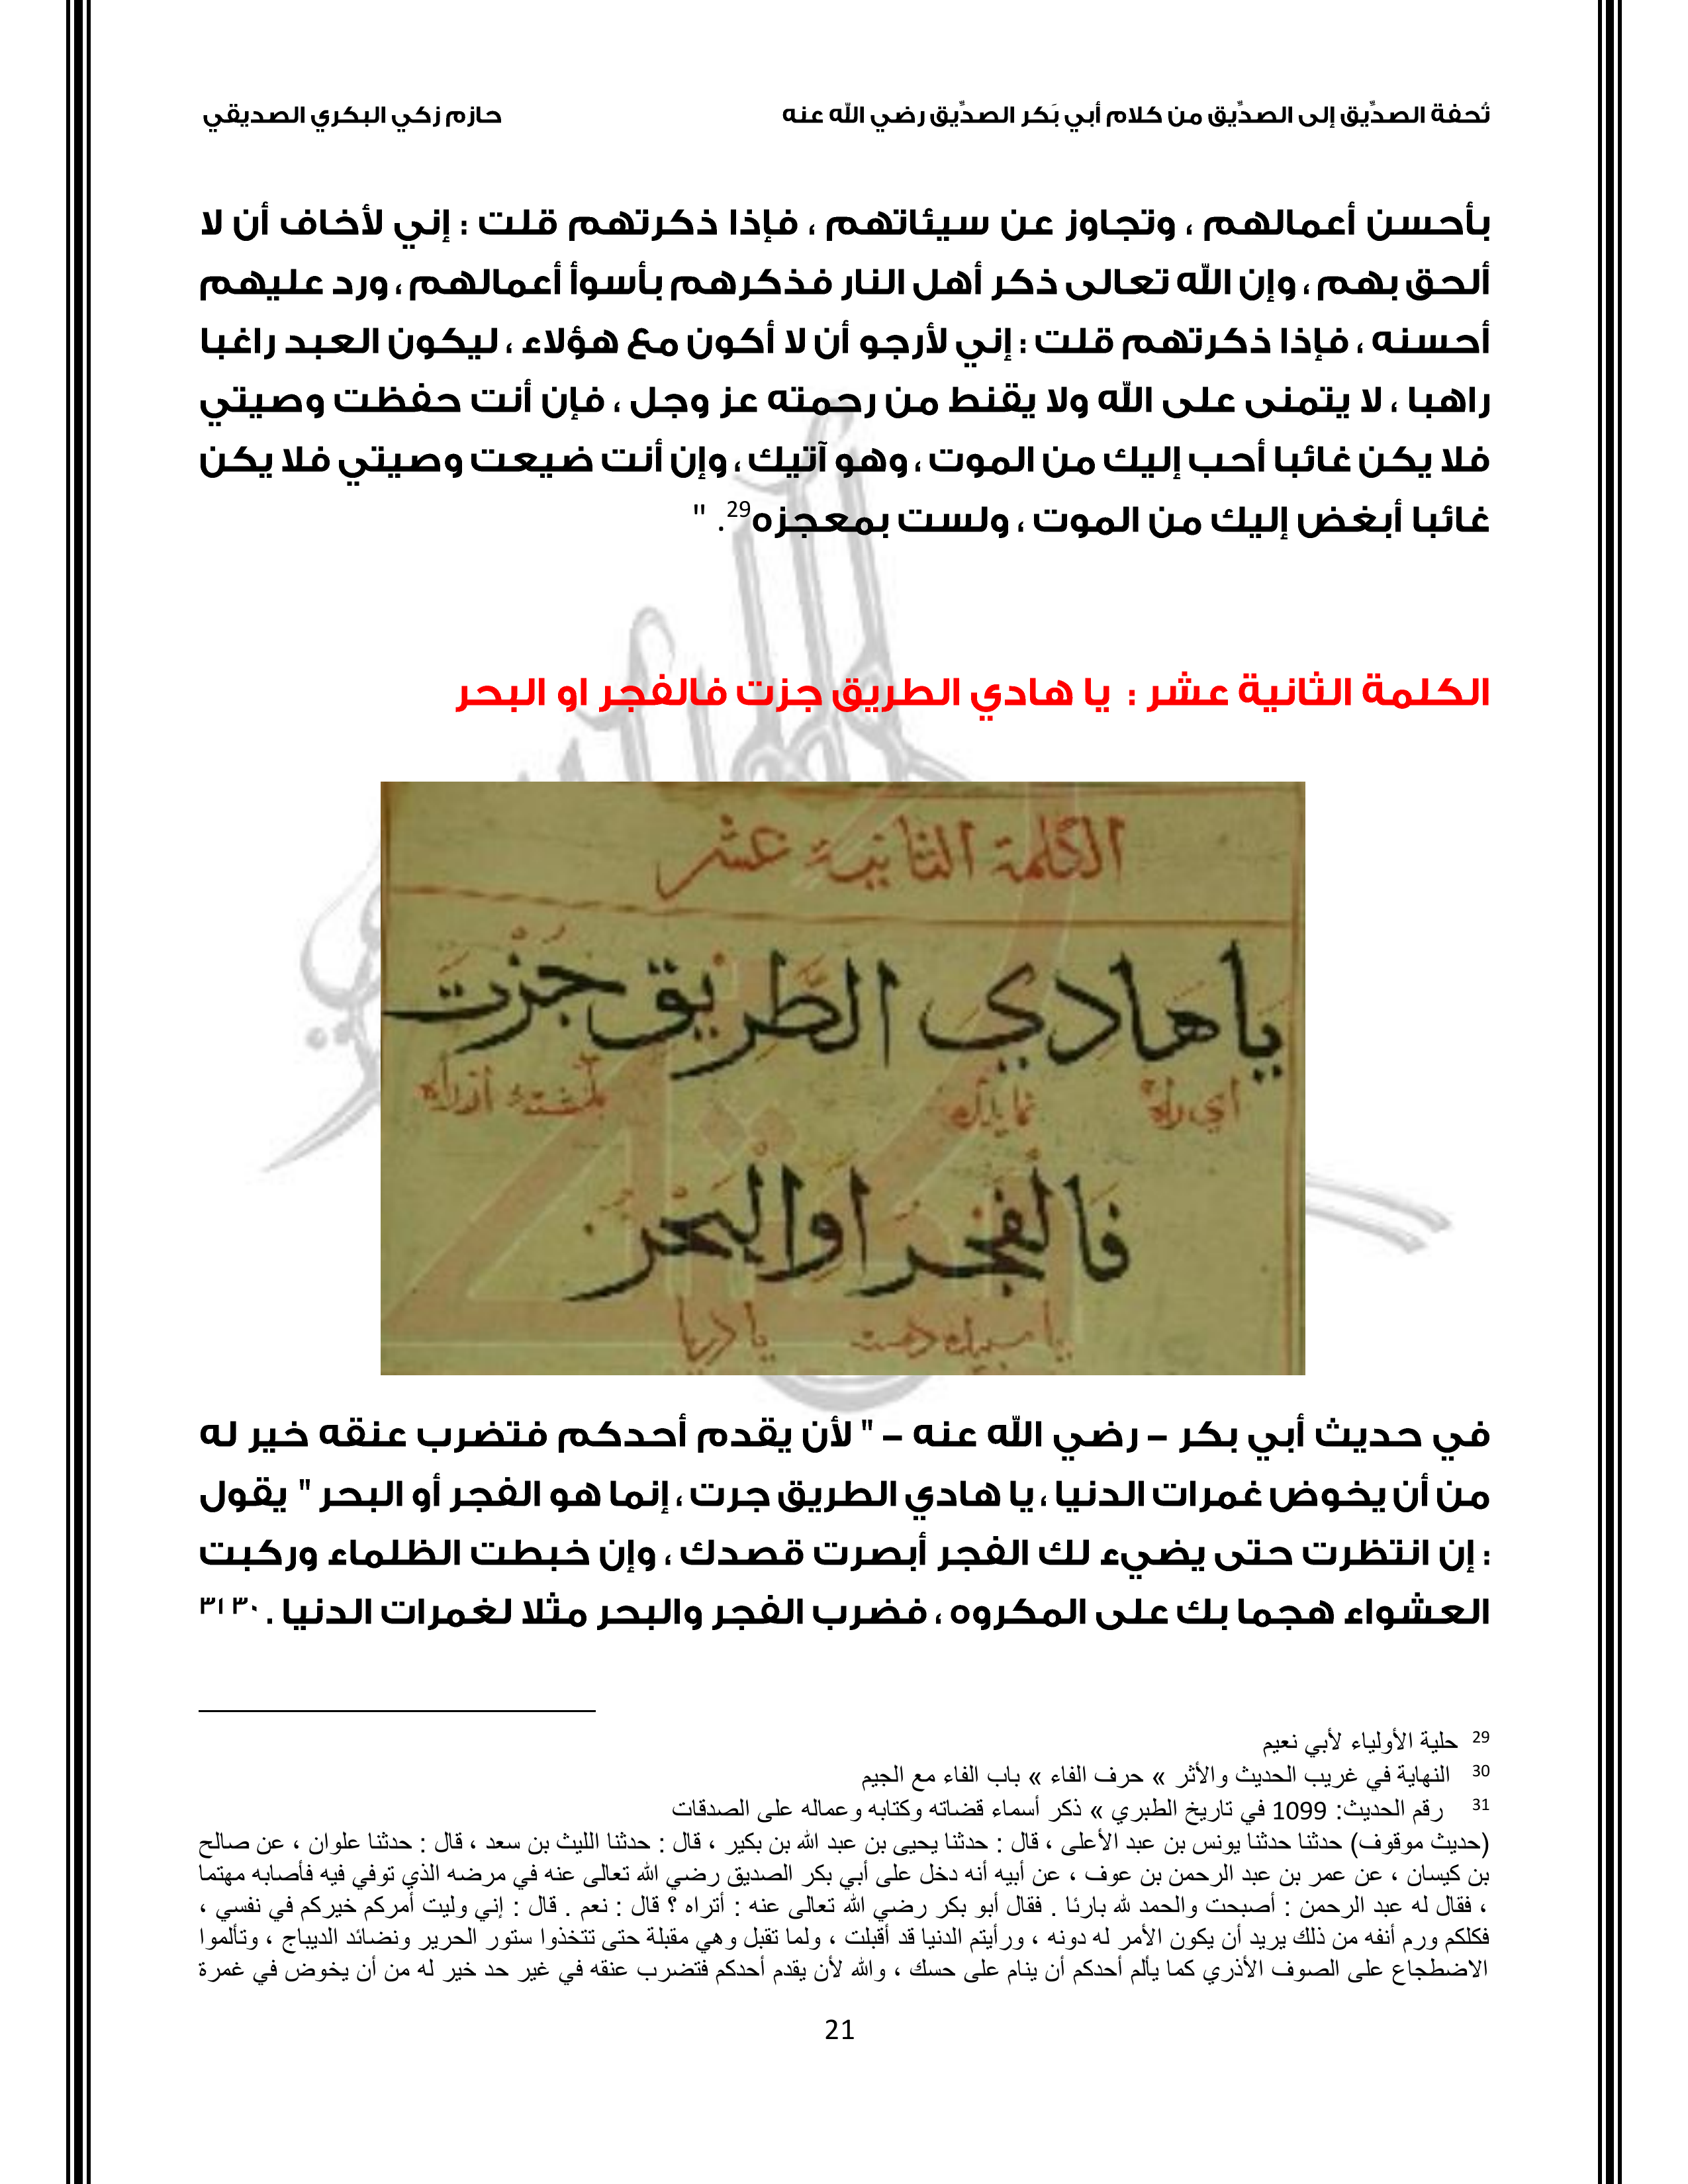 تُحفة الصدِّيق إلى الصدِّيق من كلام أبي بَكر الصدِّيق رضي الله عنه حازم زكي البكري الصديقي
بأحسن أعمالهم ، وتجاوز عن سيئاتهم ، فإذا ذكرتهم قلت : إني لأخاف أن لا
ألحق بهم ، وإن الله تعالى ذكر أهل النار فذكرهم بأسوأ أعمالهم ، ورد عليهم
أحسنه ، فإذا ذكرتهم قلت : إني لأرجو أن لا أكون مع هؤلاء ، ليكون العبد راغبا
راهبا ، لا يتمنى على الله ولا يقنط من رحمته عز وجل ، فإن أنت حفظت وصيتي
فلا يكن غائبا أحب إليك من الموت ، وهو آتيك ، وإن أنت ضيعت وصيتي فلا يكن
غائبا أبغض إليك من الموت ، ولست بمعجزه29. "
الكلمة الثانية عشر : يا هادي الطريق جزت فالفجر او البحر
الكلمة الثانية عشر
يا هَادي الطَّرِيق جُزْتَ
أي راه نماينده گذشتهٔ از راه
فَالْفَجْرُ اَوِ الْبَحْرُ
يا سپيده دمست يا دريا
في حديث أبي بكر – رضي الله عنه – " لأن يقدم أحدكم فتضرب عنقه خير له
من أن يخوض غمرات الدنيا ، يا هادي الطريق جرت ، إنما هو الفجر أو البحر " يقول
: إن انتظرت حتى يضيء لك الفجر أبصرت قصدك ، وإن خبطت الظلماء وركبت
العشواء هجما بك على المكروه ، فضرب الفجر والبحر مثلا لغمرات الدنيا . ٣٠ ٣١
29 حلية الأولياء لأبي نعيم
30 النهاية في غريب الحديث والأثر » حرف الفاء » باب الفاء مع الجيم
31 رقم الحديث: 1099 في تاريخ الطبري » ذكر أسماء قضاته وكتابه وعماله على الصدقات
(حديث موقوف) حدثنا حدثنا يونس بن عبد الأعلى ، قال : حدثنا يحيى بن عبد الله بن بكير ، قال : حدثنا الليث بن سعد ، قال : حدثنا علوان ، عن صالح
بن كيسان ، عن عمر بن عبد الرحمن بن عوف ، عن أبيه أنه دخل على أبي بكر الصديق رضي الله تعالى عنه في مرضه الذي توفي فيه فأصابه مهتما
، فقال له عبد الرحمن : أصبحت والحمد لله بارئا . فقال أبو بكر رضي الله تعالى عنه : أتراه ؟ قال : نعم . قال : إني وليت أمركم خيركم في نفسي ،
فكلكم ورم أنفه من ذلك يريد أن يكون الأمر له دونه ، ورأيتم الدنيا قد أقبلت ، ولما تقبل وهي مقبلة حتى تتخذوا ستور الحرير ونضائد الديباج ، وتألموا
الاضطجاع على الصوف الأذري كما يألم أحدكم أن ينام على حسك ، والله لأن يقدم أحدكم فتضرب عنقه في غير حد خير له من أن يخوض في غمرة
21